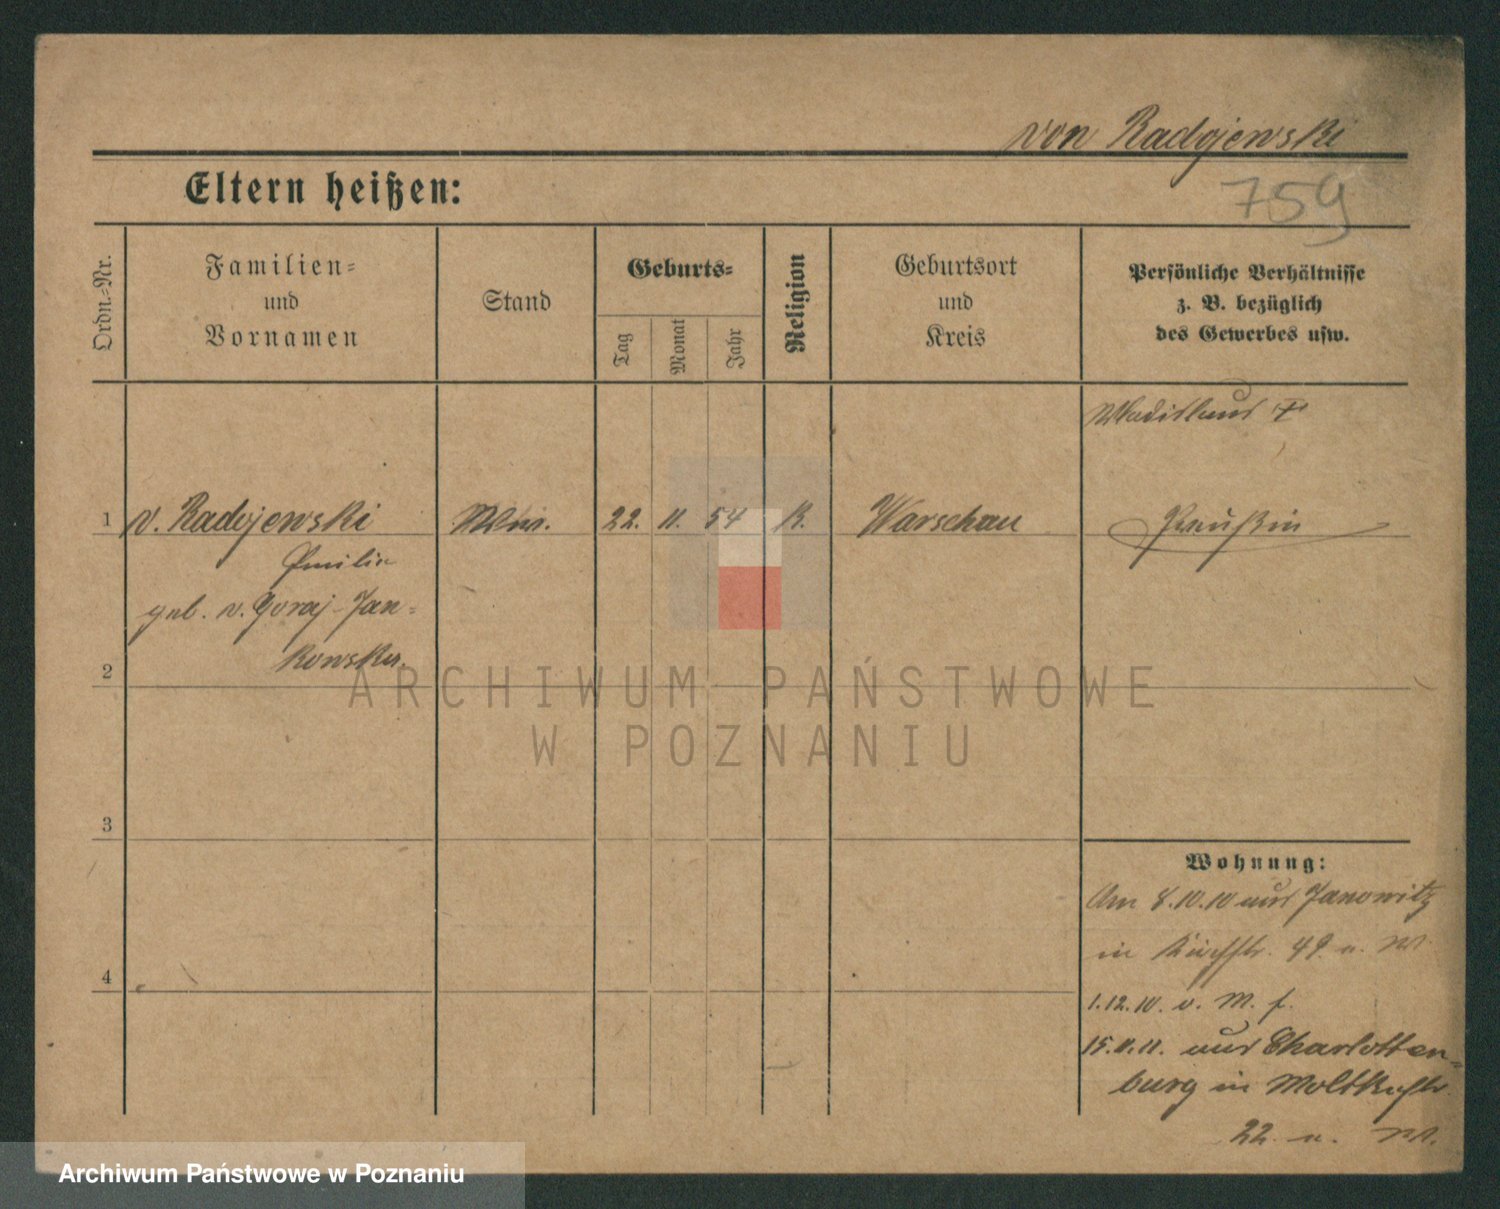 von Radojewski
759
Eltern heißen:
Ordn.-Nr.
Familien-
und
Vornamen
Stand
Geburts-
Tag
Monat
Jahr
Religion
Geburtsort
und
Kreis
Persönliche Verhältnisse
z. B. bezüglich
des Gewerbes usw.
1 v. Radojewski Wwe. 22. 11. 54 K. Warschau Preußin
Emilie
geb. v. Goraj-Jan-
kowska.
2
3
4
Wohnung:
Am 8.10.10 aus Janowitz
in 49. u. M.
1.12.10. v. M. f.
15.11.11. aus Charlotten-
burg in Moltkestr.
22. u. M.
ARCHIWUM PAŃSTWOWE
W POZNANIU
Archiwum Państwowe w Poznaniu